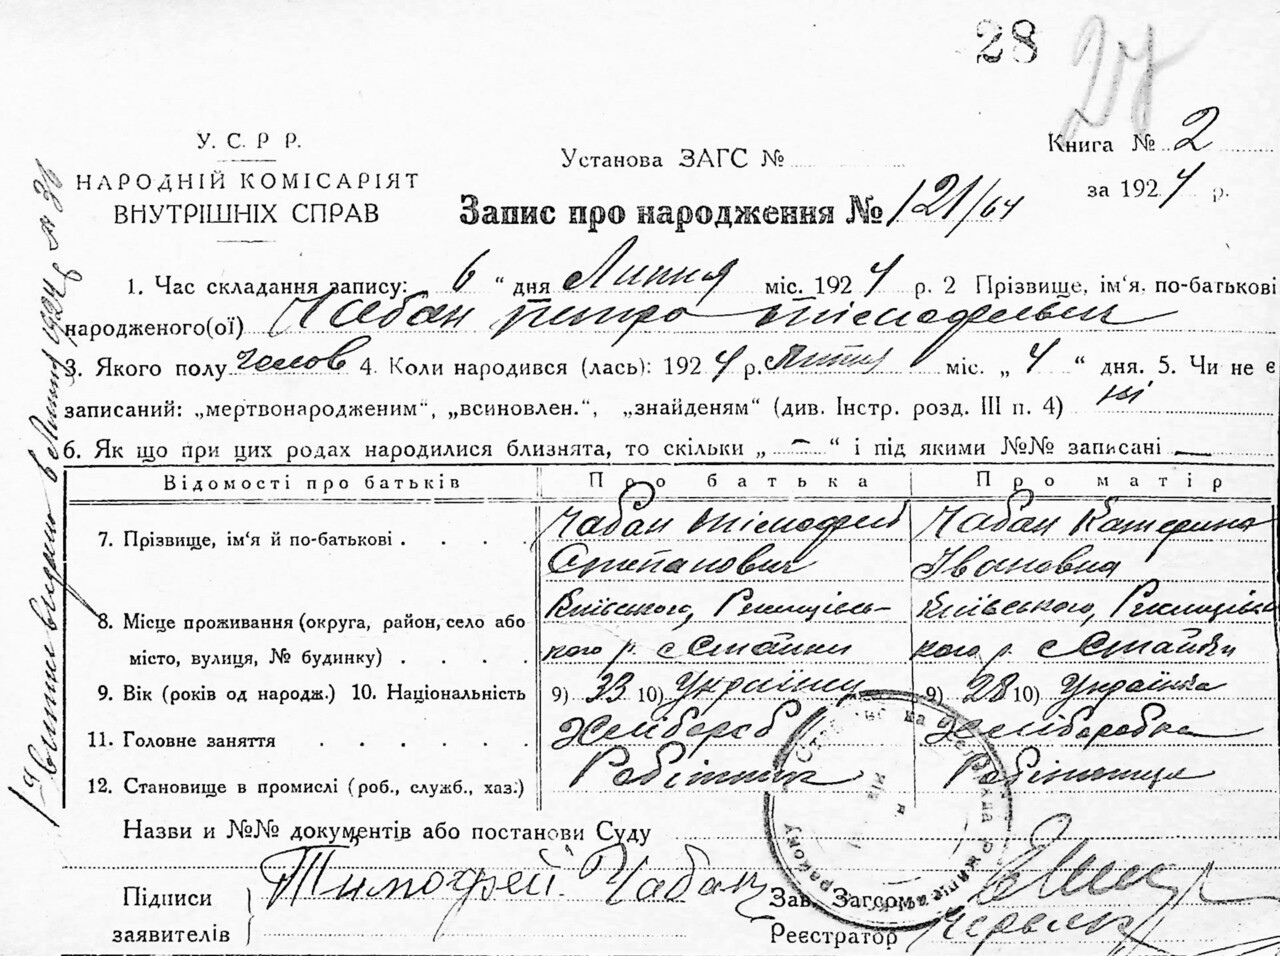 28
27
У. С. Р Р.
НАРОДНІЙ КОМІСАРІЯТ
ВНУТРІШНІХ СПРАВ
Установа ЗАГС №
Книга № 2
за 1924 р.
Запис про народження № 121/64
1. Час складання запису: „ 6 “ дня Липня міс. 1924 р. 2 Прізвище, ім'я, по-батькові
народженого(ої) Чабан Петро Тімофеевич
3. Якого полу чолов 4. Коли народився (лась): 1924 р. Липня міс. „ 4 “ дня. 5. Чи не є
записаний: „мертвонародженим“, „всиновлен.“, „знайденям“ (див. Інстр. розд. III п. 4) ні
6. Як що при цих родах народилися близнята, то скільки „ — “ і під якими №№ записані —
Відомості про батьків Про батька Про матір
7. Прізвище, ім'я й по-батькові . . . . Чабан Тімофей Чабан Катерина
Степанович Івановна
8. Місце проживання (округа, район, село або Київського, Ржищівсь- Київського, Ржищівсь
місто, вулиця, № будинку) . . . . кого р. с Стайки кого р. с Стайки
9. Вік (років од народж.) 10. Національність 9) 33 10) Українец 9) 28 10) Українка
11. Головне заняття . . . . . . Хлібороб Хліборобка
12. Становище в промислі (роб., служб., хаз.) Робітник Робітниця
Назви и №№ документів або постанови Суду
Підписи Тимофей Чабан Зав. Загсом
заявителів Реєстратор